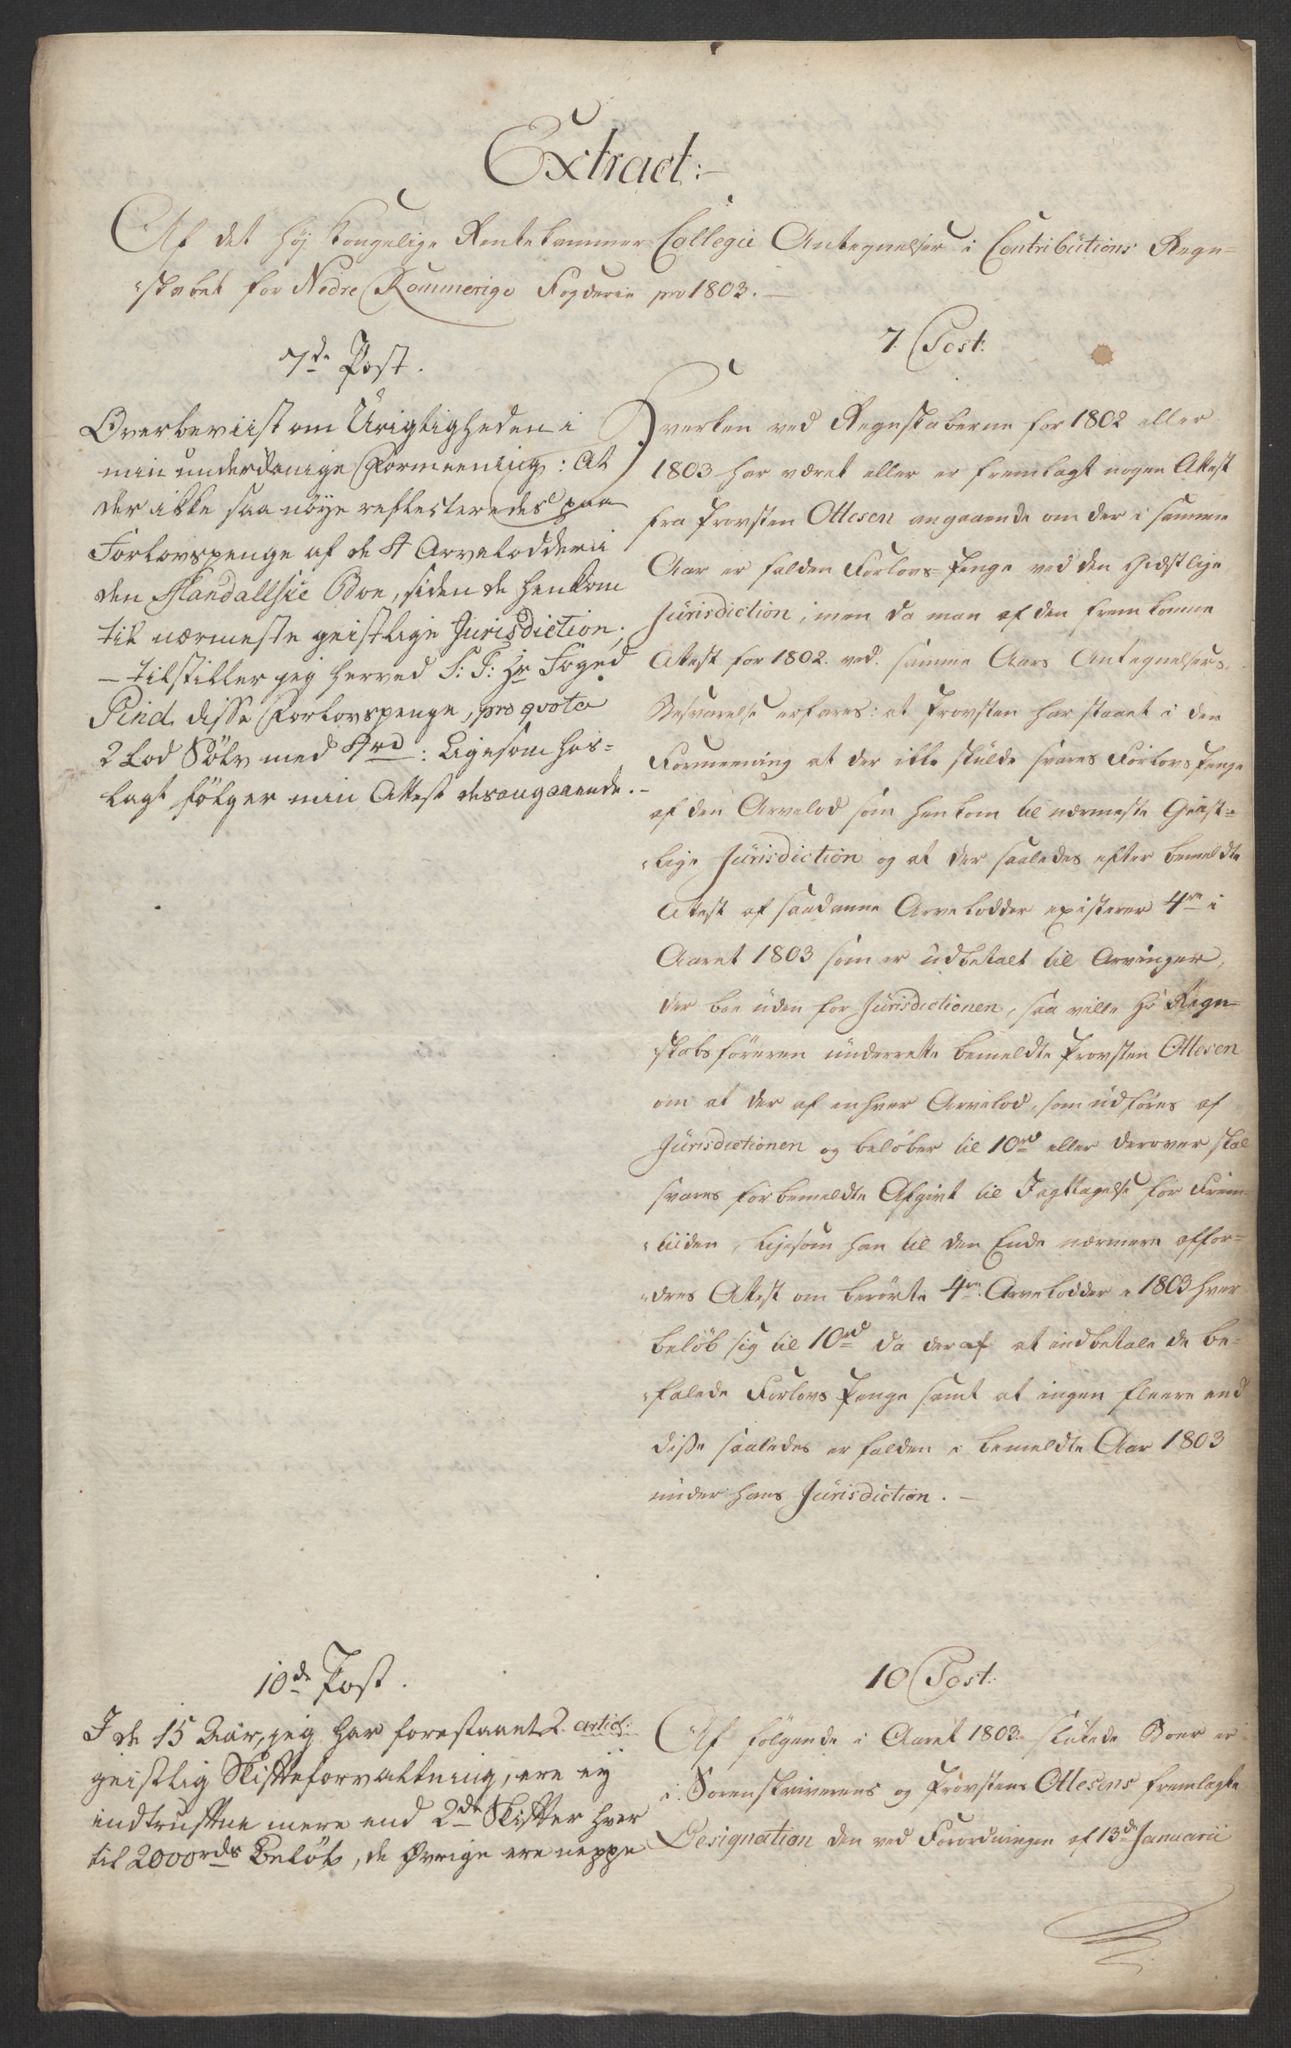 Extract:
Af det høj Kongelige Rentekammer Collegii Antegnelser i Contributions Regn-
skabet for Nedre Rommerige Fogderie pro 1803.
7de Post.
Overbeviist om Urigtigheden i
min underdanige Formeening: At
der ikke saa nøye reflecteredes paa
Forlovspenge af de 4 Arvelodder i
den Handallske Boe, siden de henkom
til nærmeste geistlige Jurisdiction;
– tilstiller jeg herved S: T: Hr Foged
Pind disse Forlovspenge, pro qvota
2 Lod Sølv med 4rd: Ligesom hos-
lagt følger min Attest desangaaende.
7. Post:
Hverken ved Regnskaberne for 1802 eller
1803 har været eller er fremlagt nogen Attest
fra Provsten Ottesen angaaende om der i samme
Aar er falden Forlovs Penge ved den Geistlige
Jurisdiction, men da man af den fremkomne
Attest for 1802 ved samme Aars Antegnelsers
Besvarelse erfares: at Provsten har staaet i den
Formeening at der ikke skulde svares Forlovs Penge
af den Arvelod som henkom til nærmeste Geist-
lige Jurisdiction og at der saaledes efter bemeldte
Attest af saadanne Arvelodder existerer 4re i
Aaret 1803 som er udbetalt til Arvinger,
der boe uden for Jurisdictionen, saa ville Hr Regn-
skabsføreren underrette bemeldte Provsten Ottesen
om at der af enhver Arvelod, som udføres af
Jurisdictionen og beløber til 10rd eller derover skal
svares forbemeldte Afgivt til Jagttagelse for Frem-
tiiden, ligesom han til den Ende nærmere affor-
dres Attest om berørte 4re Arvelodder i 1803 hver
beløb sig til 10rd da deraf at indbetale de be-
falede Forlovs Penge samt at ingen fleere end
disse saaledes er falden i bemeldte Aar 1803
under hans Jurisdiction. –
10de Post.
I de 15 Aar, jeg har forestaaet 2 artid:
geistlig Skifteforvaltning, ere ey
indtruffne mere end 2de Skifter hver
til 2000rds Beløb, de Øvrige ere neppe
10 Post:
Af følgende i Aaret 1803 sluttede Boer er
i Sorenskriverens og Provstens Ottesens fremlagte
Designation den ved Forordningen af 13de Januarii